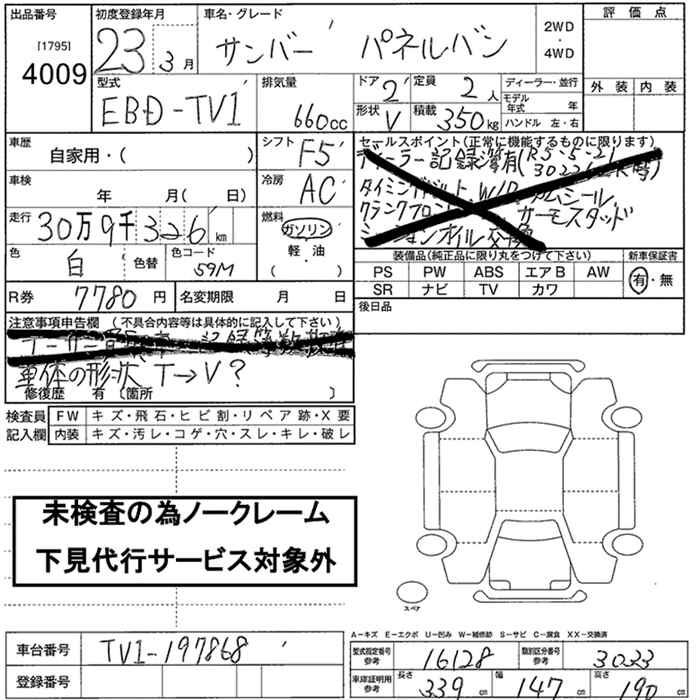 出品番号 初度登録年月 車名・グレード 評価点
[1795]
4009
23 3月 サンバー パネルバン 2WD・4WD
型式 排気量 ドア 定員 ディーラー・並行 外装 内装
EBD-TV1 660cc 2 2人 モデル年式 年
形状 V 積載 350kg ハンドル 左・右
車歴 シフト F5 セールスポイント(正常に機能するものに限ります)
自家用・( )
ディーラー記録簿有(R5-5-21
車検 冷房 AC
年 月( 日)
タイミングベルト W/P カムシール
クランクプロント サーモスタッド
ミッションオイル交換
走行 30万9千326km 燃料 ガソリン・軽油
( )
色 白 色替 色コード 59M
装備品(純正品に限り丸をつけて下さい) 新車保証書
PS PW ABS エアB AW 有・無
SR ナビ TV カワ
R券 7780円 名変期限 月 日
後日品
注意事項申告欄 (不具合内容等は具体的に記入して下さい)
車体の形状 T→V?
修復歴 有 〔箇所 〕
検査員記入欄
FW キズ・飛石・ヒビ割・リペア跡・X要
内装 キズ・汚レ・コゲ・穴・スレ・キレ・破レ
未検査の為ノークレーム
下見代行サービス対象外
スペア
A−キズ E−エクボ U−凹み W−補修跡 S−サビ C−腐食 XX−交換済
車台番号 TV1-197868
登録番号
型式指定番号参考 16128 類別区分番号参考 3023
車庫証明用参考 長さ 339cm 幅 147cm 高さ 190cm